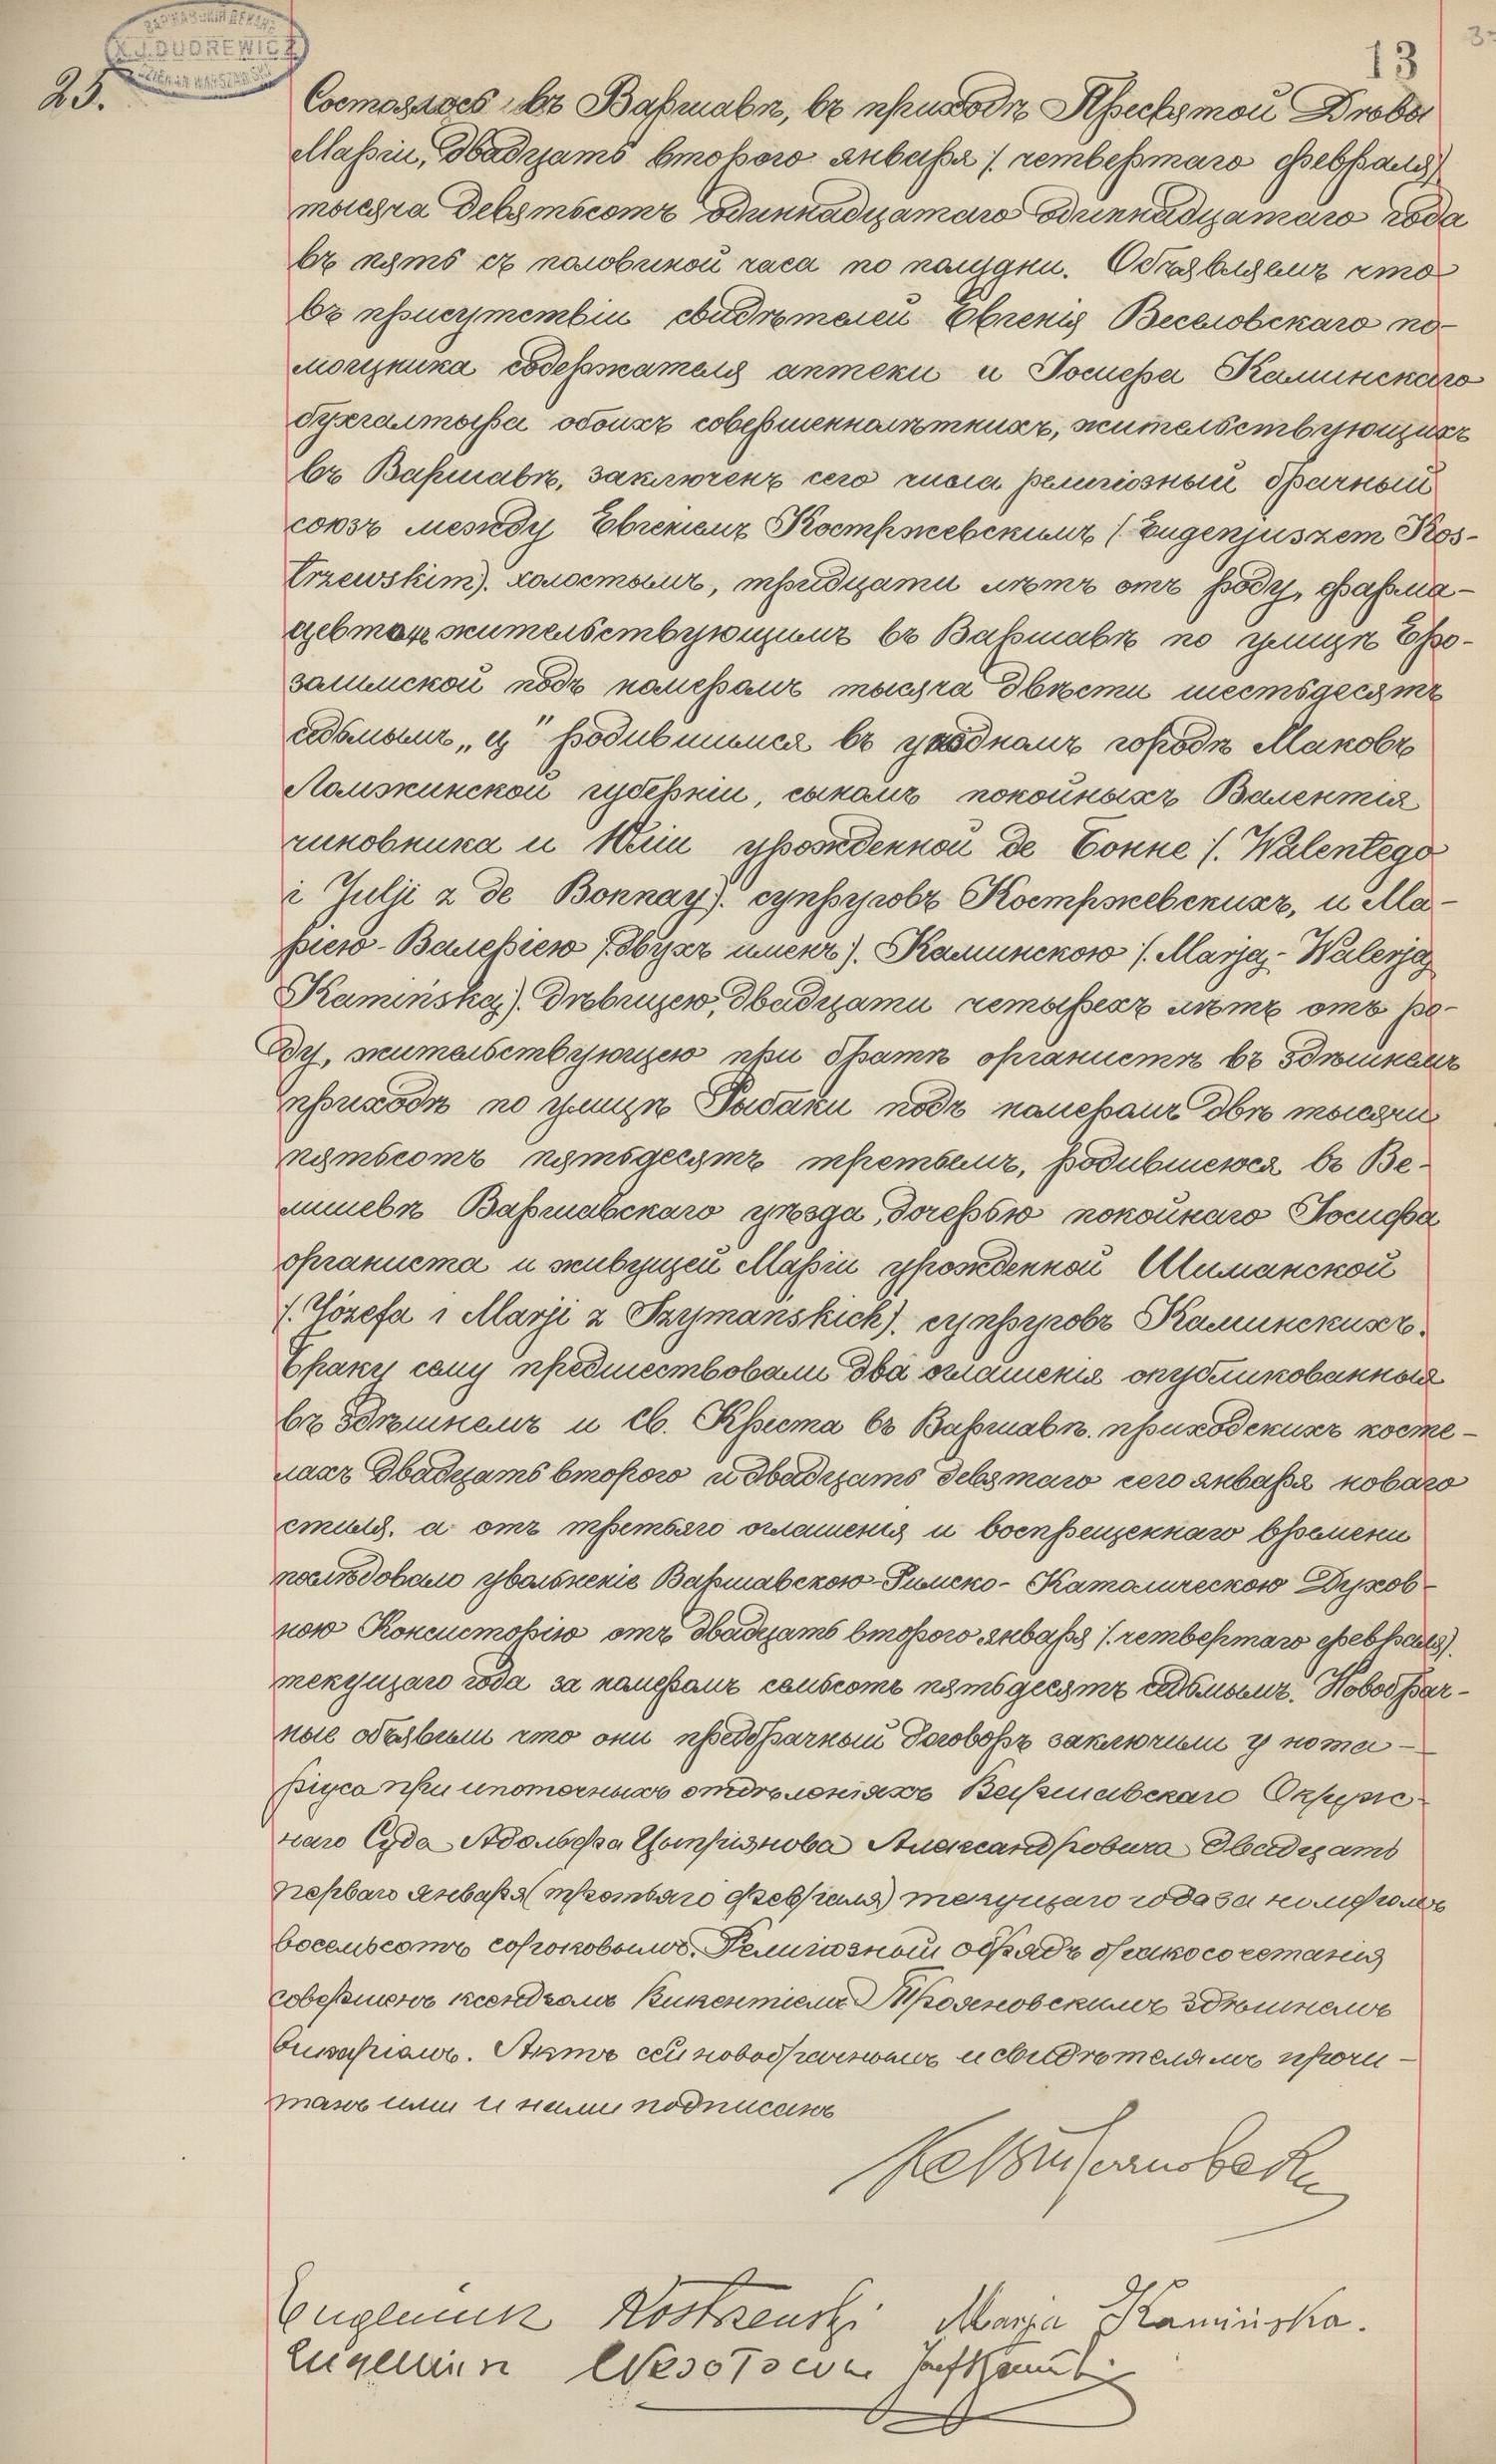 13
25.
Состоялось въ Варшавѣ, въ приходѣ Пресвятой Дѣвы
Маріи, двадцать второго января /: четвертаго февраля:/
тысяча девятьсотъ одиннадцатаго одиннадцатаго года
въ пять съ половиной часа по полудни. Объявляемъ что
въ присутствіи свидѣтелей Евгенія Веселовскаго по-
мощника содержателя аптеки и Іосифа Каминскаго
бухгалтера обоихъ совершеннолѣтнихъ, жительствующихъ
въ Варшавѣ, заключенъ сего числа религіозный брачный
союзъ между Евгеніемъ Костржевскимъ /: Eugenjuszem Kos-
trzewskim:/. холостымъ, тридцати лѣтъ отъ роду, фарма-
цевтомъ жительствующимъ въ Варшавѣ по улицѣ Еро-
залимской подъ номеромъ тысяча двѣсти шестьдесятъ
седьмымъ „ц" родившимся въ уѣздномъ городѣ Маковѣ
Ломжинской губерніи, сыномъ покойныхъ Валентія
чиновника и Юліи урожденной де Бонне /: Walentego
i Julji z de Bonnay:/. супруговъ Костржевскихъ, и Ма-
ріею-Валеріею /: двухъ именъ:/. Каминскою /: Marją-Walerją
Kamińską:/. дѣвицею, двадцати четырехъ лѣтъ отъ ро-
ду, жительствующею при братѣ органистѣ въ здѣшнемъ
приходѣ по улицѣ Рыбаки подъ номеромъ двѣ тысячи
пятьсотъ пятьдесятъ третьимъ, родившеюся въ Ве-
лишевѣ Варшавскаго уѣзда, дочерью покойнаго Іосифа
органиста и живущей Маріи урожденной Шиманской
/: Józefa i Marji z Szymańskich:/. супруговъ Каминскихъ.
Браку сему предшествовали два оглашенія опубликованныя
въ здѣшнемъ и св. Креста въ Варшавѣ. приходскихъ косте-
лахъ двадцать второго и двадцать девятаго сего января новаго
стиля, а отъ третьяго оглашенія и воспрещеннаго времени
послѣдовало увольненіе Варшавскою-Римско-Католическою Духов-
ною Консисторіею отъ двадцать второго января /: четвертаго февраля:/.
текущаго года за номеромъ семьсотъ пятьдесятъ седьмымъ. Новобрач-
ные объявили что они предбрачный договоръ заключили у нота-
ріуса при ипотечныхъ отдѣленіяхъ Варшавскаго Окруж-
наго Суда Адольфа Александровича двадцать
перваго января /: третьяго февраля:/ текущаго года за номеромъ
восемьсотъ сороковымъ. Религіозный обрядъ бракосочетанія
совершенъ ксендзомъ Викентіемъ здѣшнимъ
викаріемъ. Актъ сей новобрачнымъ и свидѣтелямъ прочи-
танъ ими и нами подписанъ
Eugeniusz Kostrzewski Marja Kamińska.
Eugeniusz Wesołowski